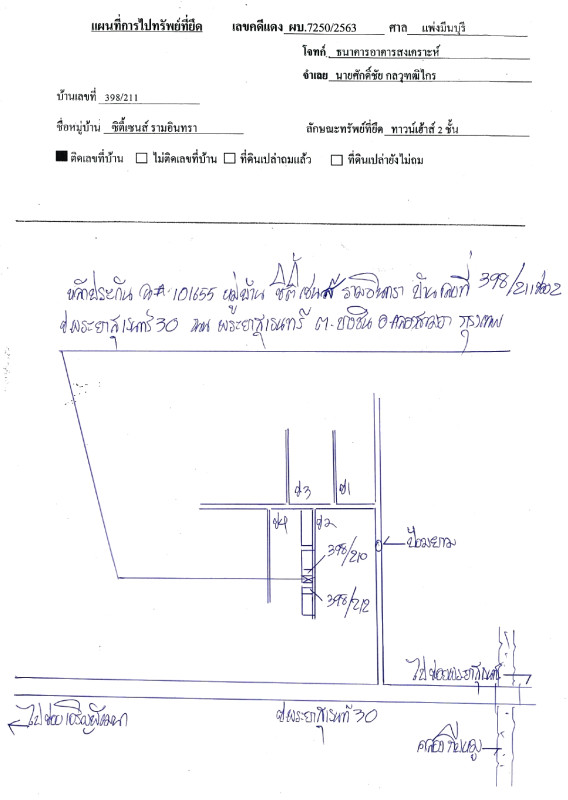 แผนที่การไปทรัพย์ที่ยึด เลขคดีแดง ผบ.7250/2563 ศาล แพ่งมีนบุรี
โจทก์ ธนาคารอาคารสงเคราะห์
จำเลย นายศักดิ์ชัย กลวุฑฒิไกร
บ้านเลขที่ 398/211
ชื่อหมู่บ้าน ซิตี้เซนส์ รามอินทรา ลักษณะทรัพย์ที่ยึด ทาวน์เฮ้าส์ 2 ชั้น
ติดเลขที่บ้าน ไม่ติดเลขที่บ้าน ที่ดินเปล่าถมแล้ว ที่ดินเปล่ายังไม่ถม
หลักประกัน 101655 หมู่บ้าน ซิตี้เซนส์ รามอินทรา บ้านเลขที่ 398/211 ซอย 2
ซ.พระยาสุเรนทร์ 30 ถนน พระยาสุเรนทร์ ต. บางชัน อ.คลองสามวา กรุงเทพ
ซ3 ซ1
ซ4 ซ2
ป้อมยาม
398/210
398/212
ไปซอยพระยาสุเรนทร์
ไปซอยเจริญพัฒนา
ซ.พระยาสุเรนทร์ 30
คลอง